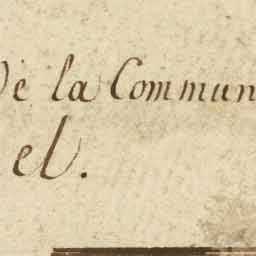 De la Commun
el.